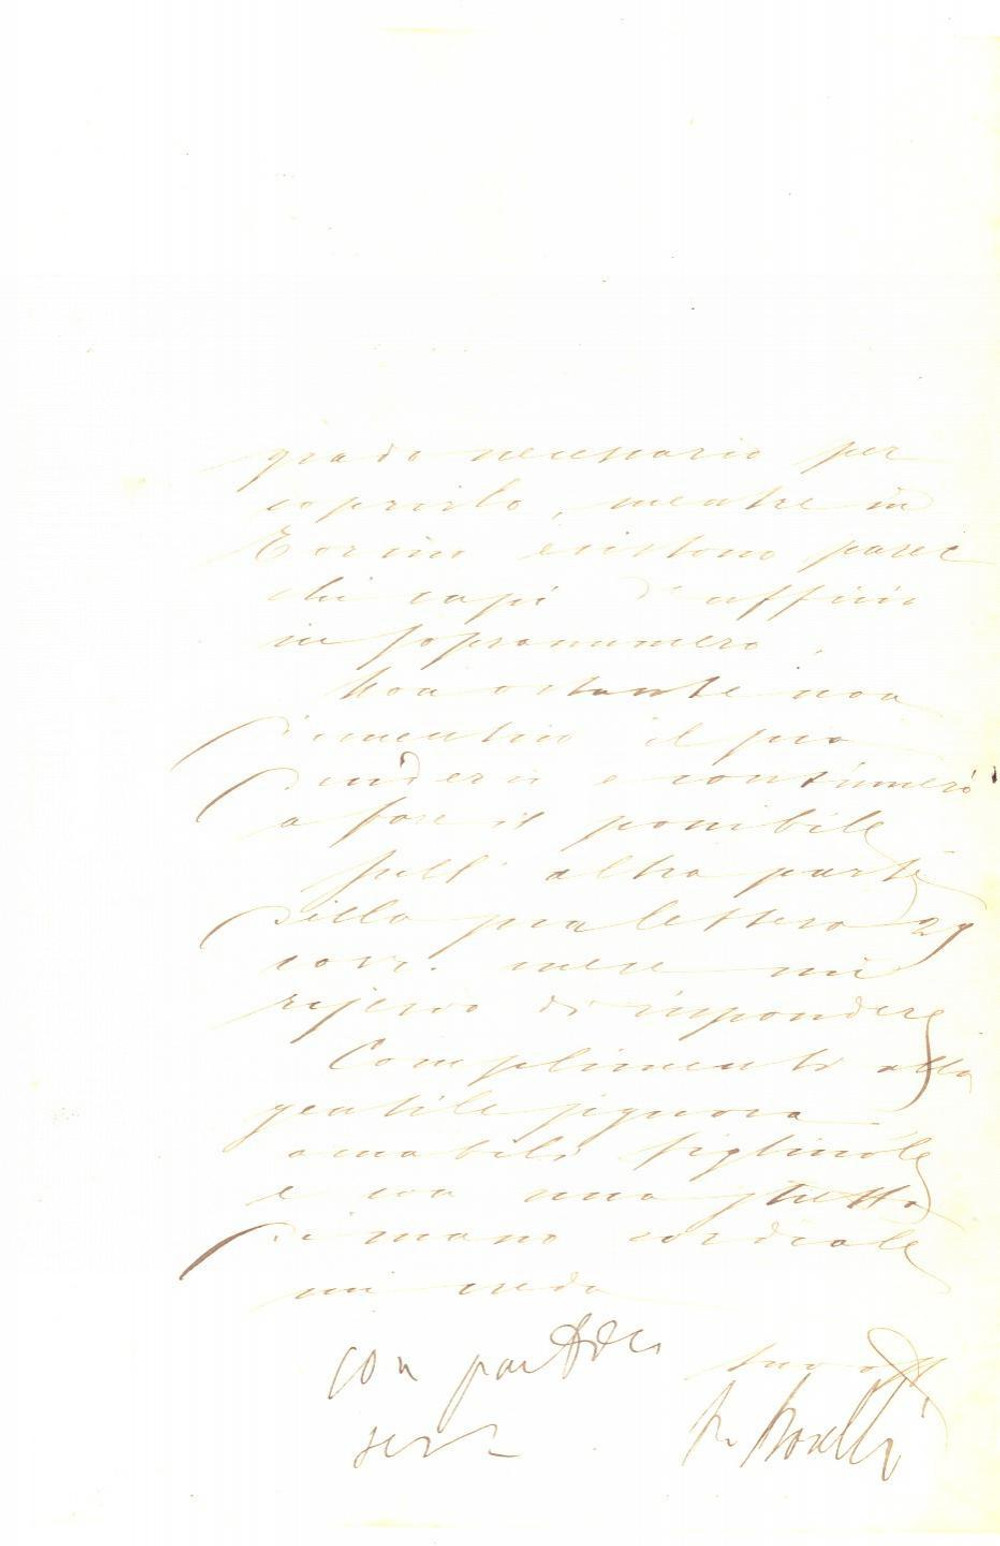 grado necessario per
coprirlo, mentre in
Torino esistono parec
chi capi d'uffizio
in soprannumero.
Non ostante non
dimentico il suo
desiderio e continuerò
a fare il possibile
Sull' altra parte
della sua lettera 29
corr. mese mi
riservo di rispondere
Complimenti alla
gentile signora
amabili figliuole
e con una stretta
di mano cordiale
mi creda
suo aff
Borelli